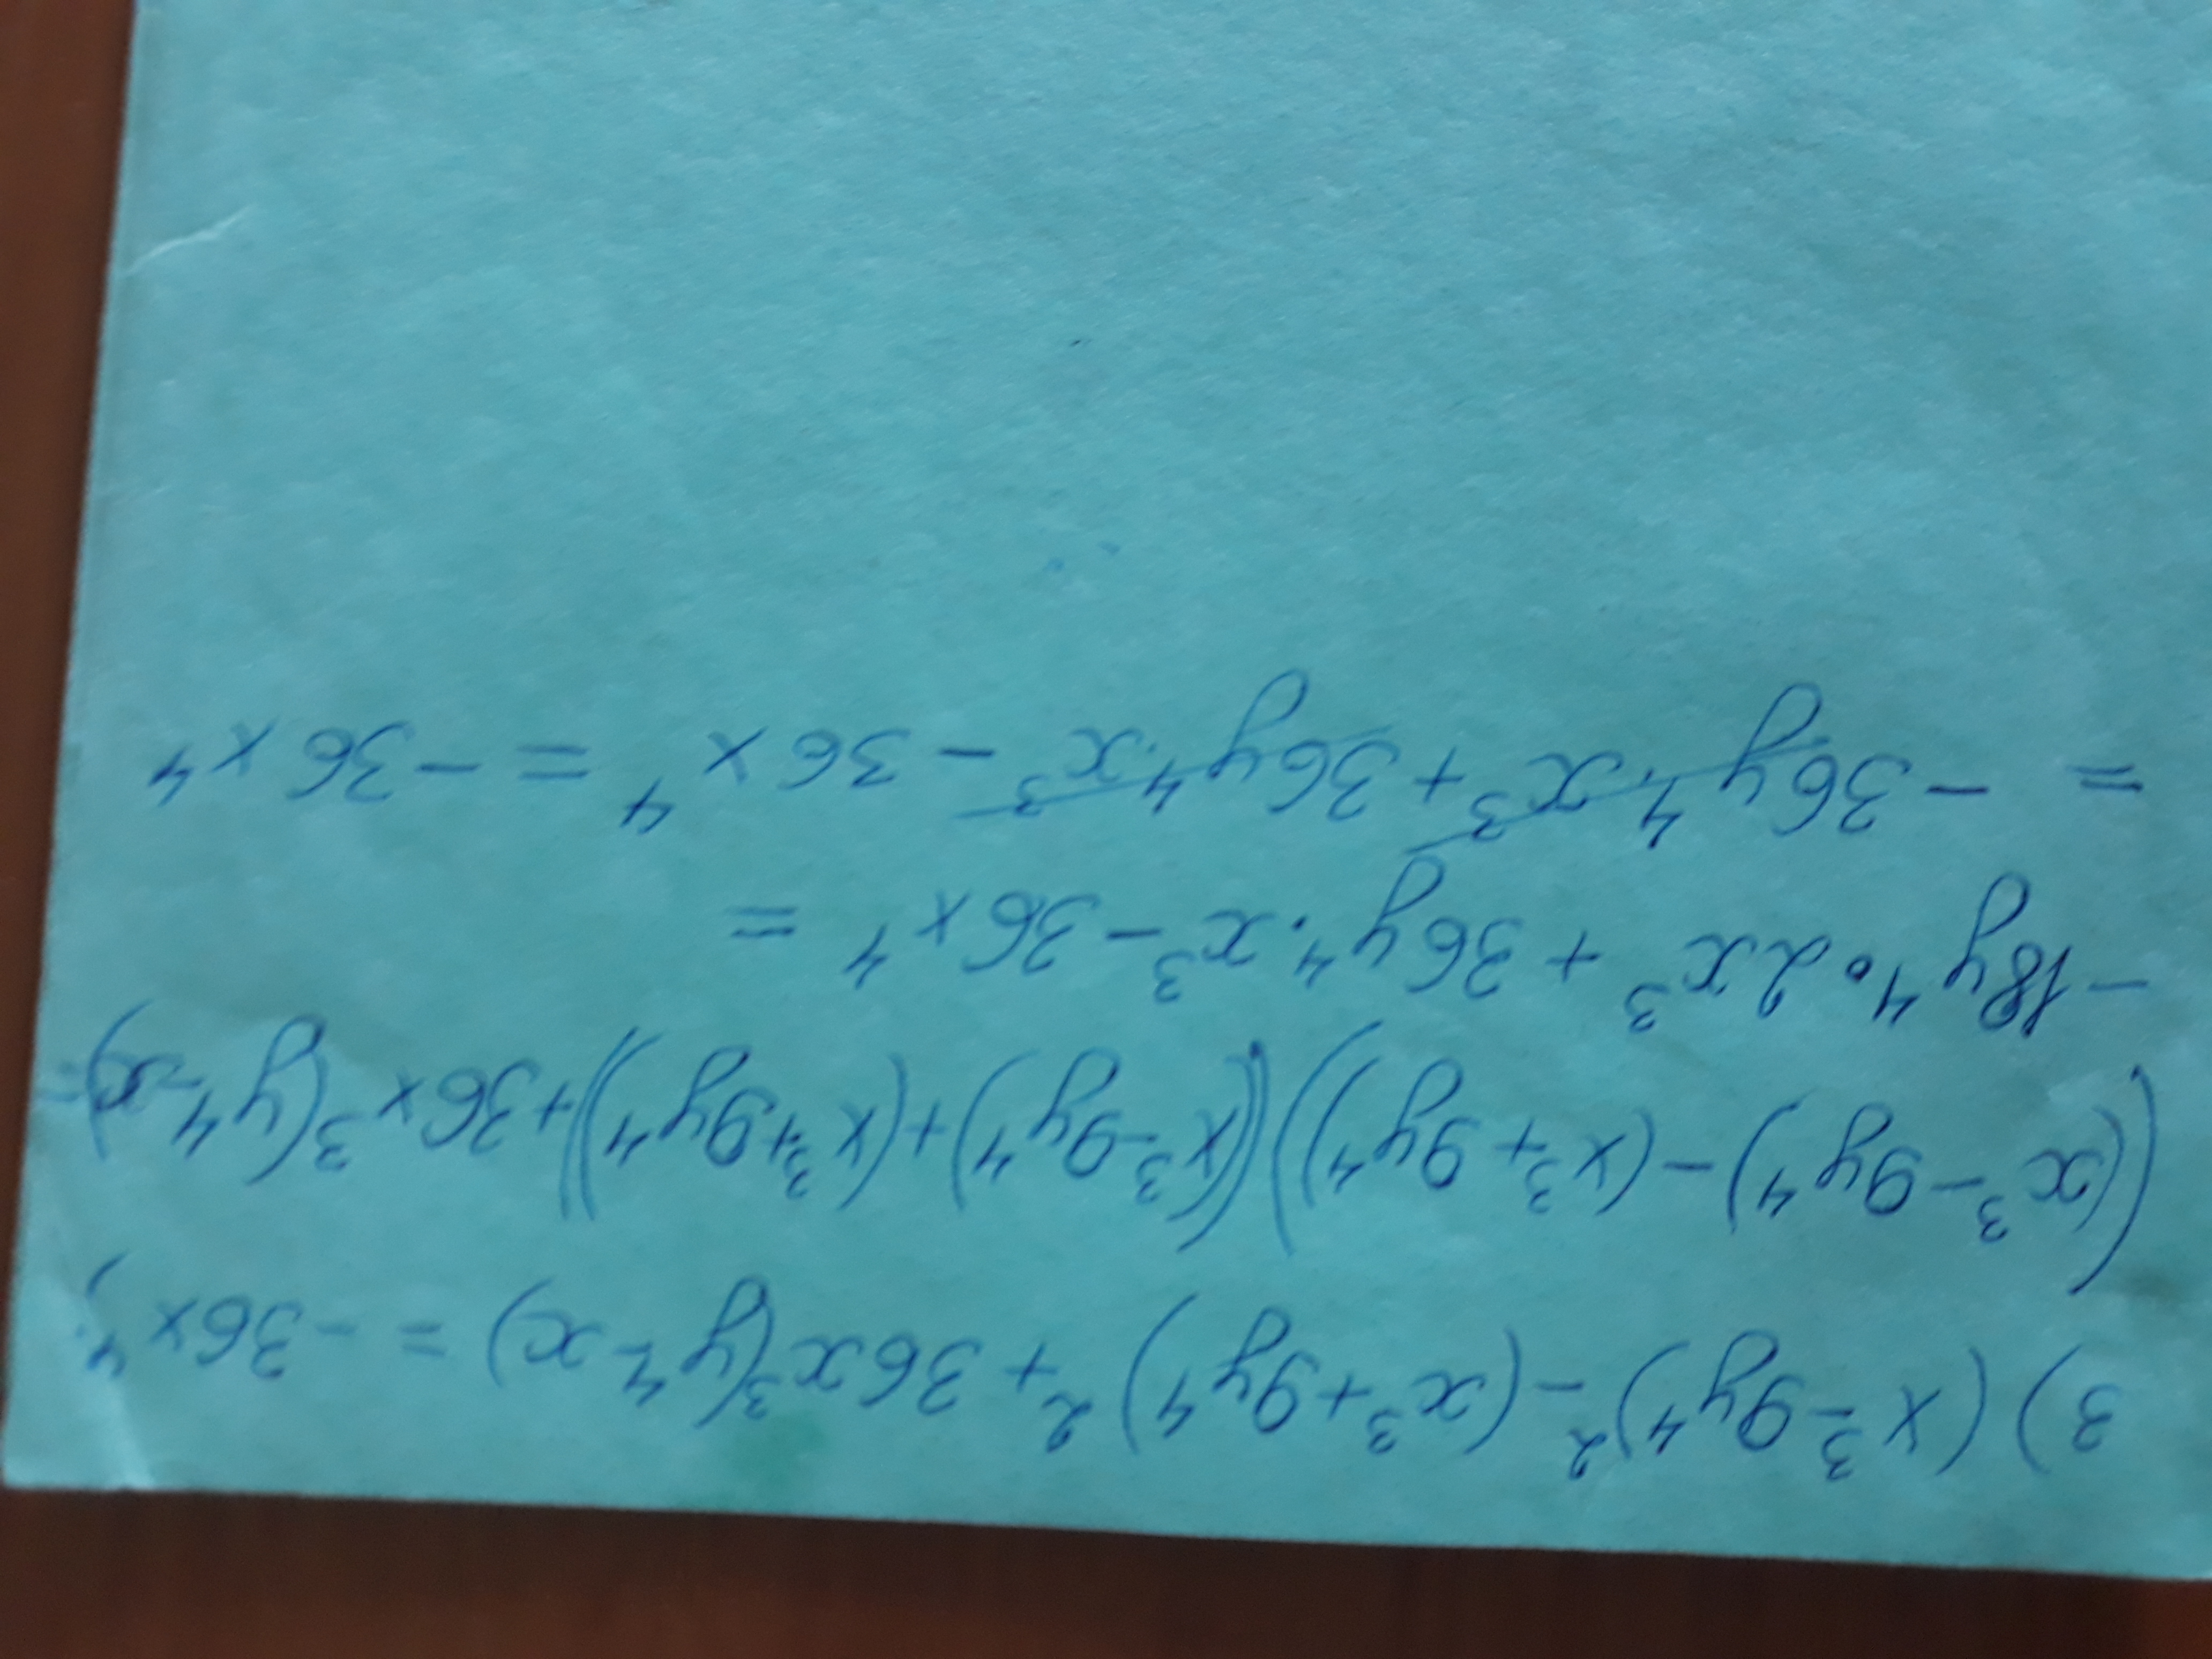 3) (x³-9y⁴)²-(x³+9y⁴)²+36x³(y⁴-x) = -36x⁴;
((x³-9y⁴)-(x³+9y⁴))((x³-9y⁴)+(x³+9y⁴))+36x³(y⁴-x)=
-18y⁴·2x³+36y⁴·x³-36x⁴ =
= -36y⁴·x³+36y⁴·x³-36x⁴ = -36x⁴